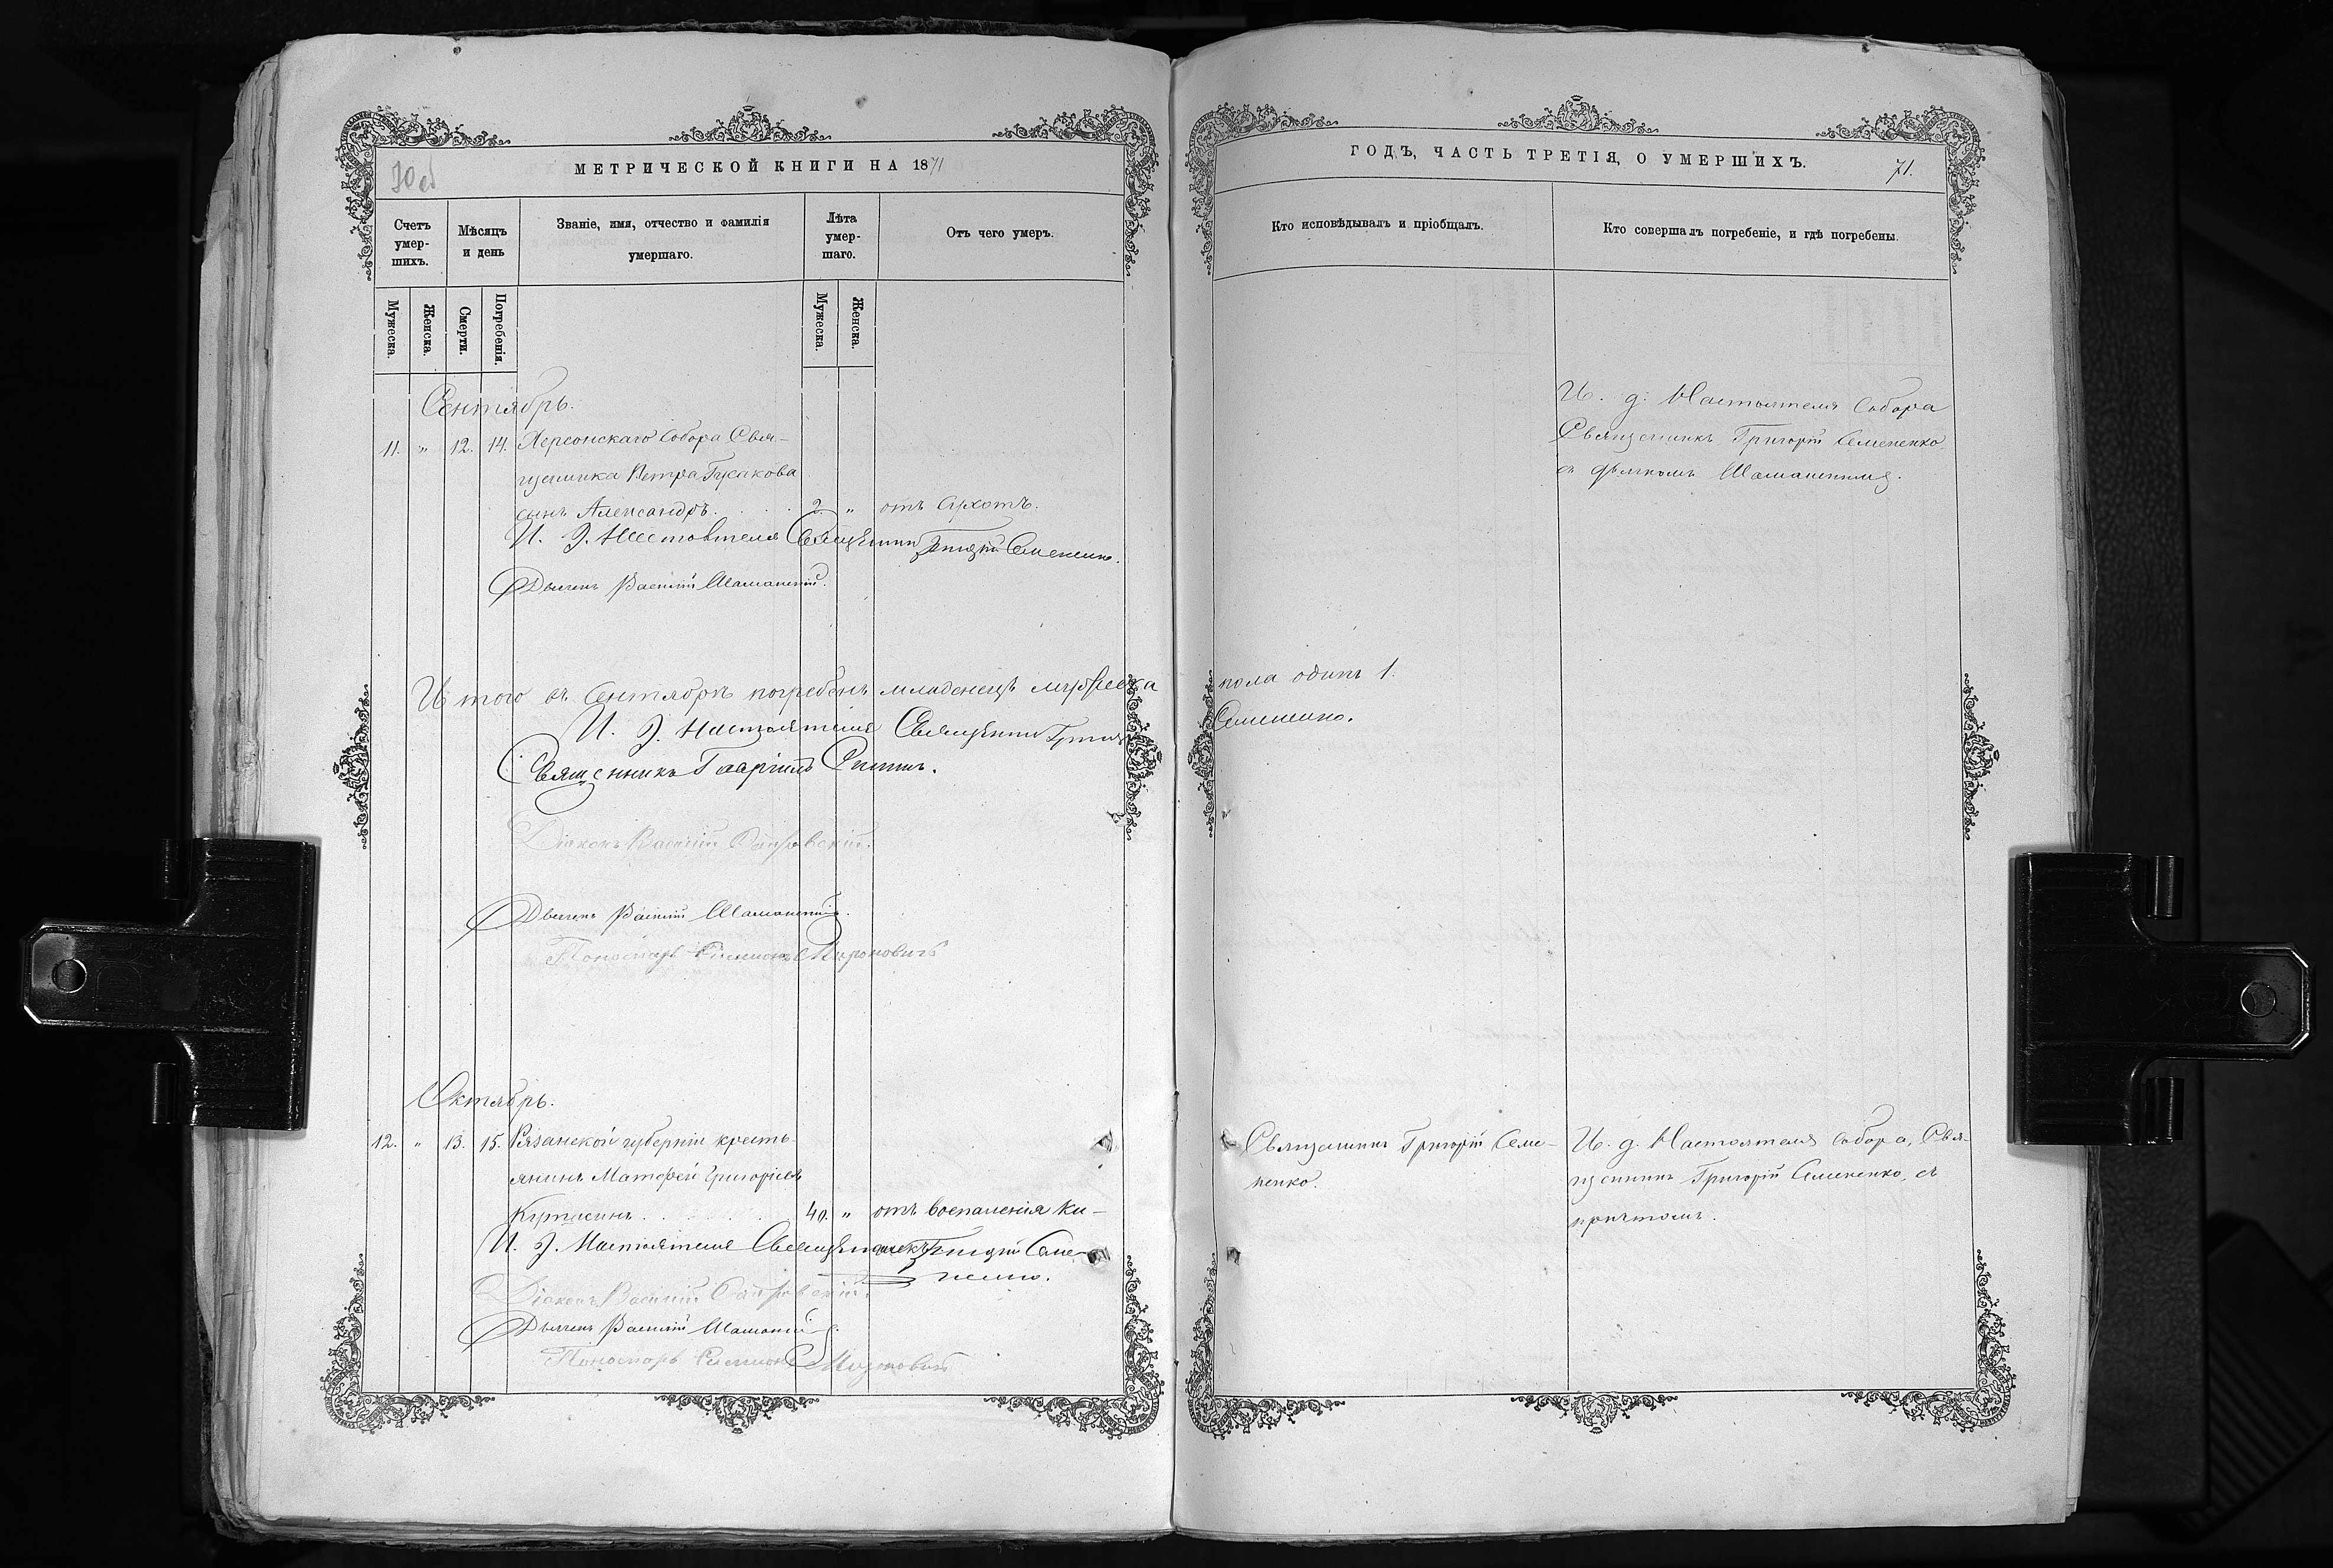 70 об
МЕТРИЧЕСКОЙ КНИГИ НА 1871
Счетъ умер-шихъ.
Мѣсяцъ и день
Званіе, имя, отчество и фамилія умершаго.
Лѣта умер-шаго.
Отъ чего умеръ.
Мужеска.
Женска.
Смерти.
Погребенія.
Мужеска.
Женска.
Сентябрь.
11. " 12. 14. Херсонскаго Собора Свя-
щенника Петра Гусакова
сынъ Александръ. 2. " отъ сухотъ.
И. Д. Настоятеля Священникъ Григорій Семененко.
Дьячекъ Василій Шаманскій.
Итого въ Сентябрѣ погребенъ младенецъ мужеска
И. Д. Настоятеля Священникъ Григорій
Священникъ Гавріилъ
Діаконъ Василій
Дьячекъ Василій Шаманскій.
Пономарь Симеонъ Мироновичъ
Октябрь.
12. " 13. 15. Рязанской губерніи кресть-
янинъ Матфей Григоріевъ
40. " отъ воспаленія ки-
шекъ
И. Д. Настоятеля Священникъ Григорій Семе-
ненко.
Діаконъ Василій
Дьячекъ Василій Шаманскій.
Пономарь Симеонъ Мироновичъ
ГОДЪ, ЧАСТЬ ТРЕТІЯ, О УМЕРШИХЪ.
71.
Кто исповѣдывалъ и пріобщалъ.
Кто совершалъ погребеніе, и гдѣ погребены.
И. д. Настоятеля Собора
Священникъ Григорій Семененко
съ дьячкомъ Шаманскимъ.
пола одинъ 1.
Семененко.
Священникъ Григорій Семе-
ненко.
И. д. Настоятеля Собора, Свя-
щенникъ Григорій Семененко, съ
причтомъ.